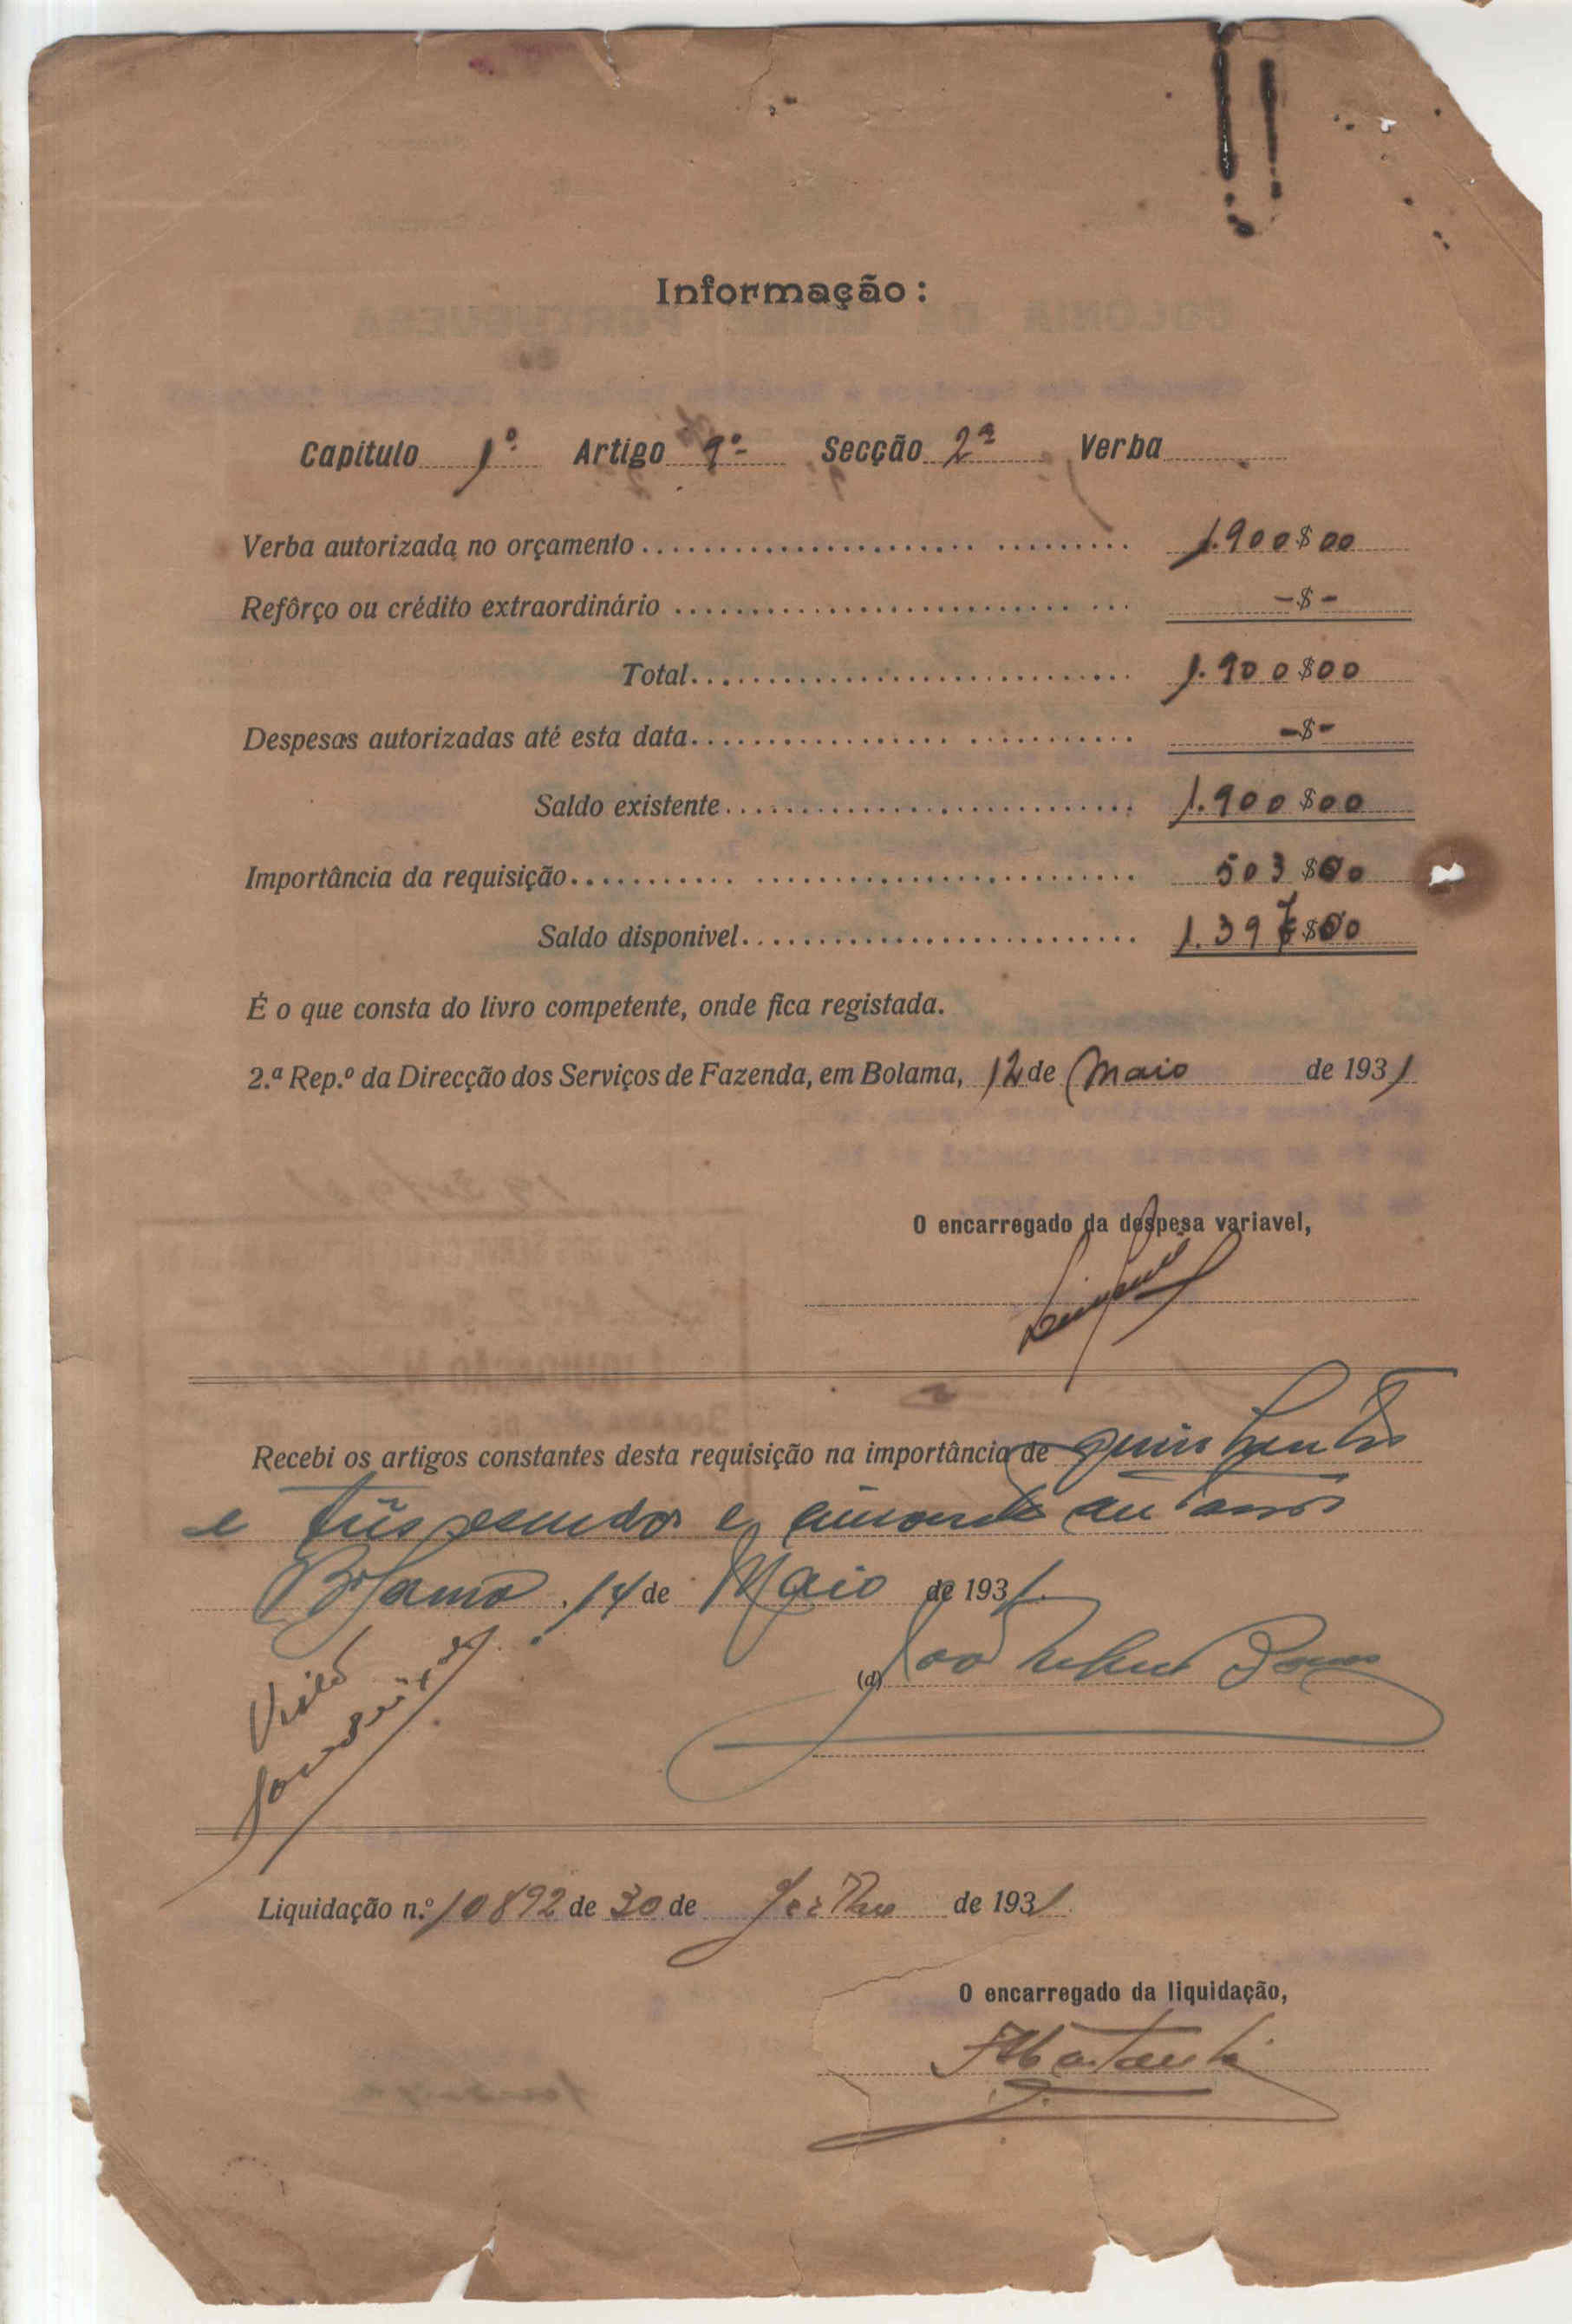 Informação:
Capitulo 1º Artigo 9º Secção 2ª Verba
Verba autorizada no orçamento 1.900$00
Refôrço ou crédito extraordinário -$-
Total 1.900$00
Despesas autorizadas até esta data -$-
Saldo existente 1.900$00
Importância da requisição 503$00
Saldo disponivel 1.397$00
É o que consta do livro competente, onde fica registada.
2.ª Rep.º da Direcção dos Serviços de Fazenda, em Bolama, 12 de Maio de 1931
O encarregado da despesa variavel,
Recebi os artigos constantes desta requisição na importância de quinhentos
e três escudos e cincoenta centavos
Bolama, 14 de Maio de 1931.
Visto
(a) João
Liquidação n.º 10892 de 30 de de 1931
O encarregado da liquidação,